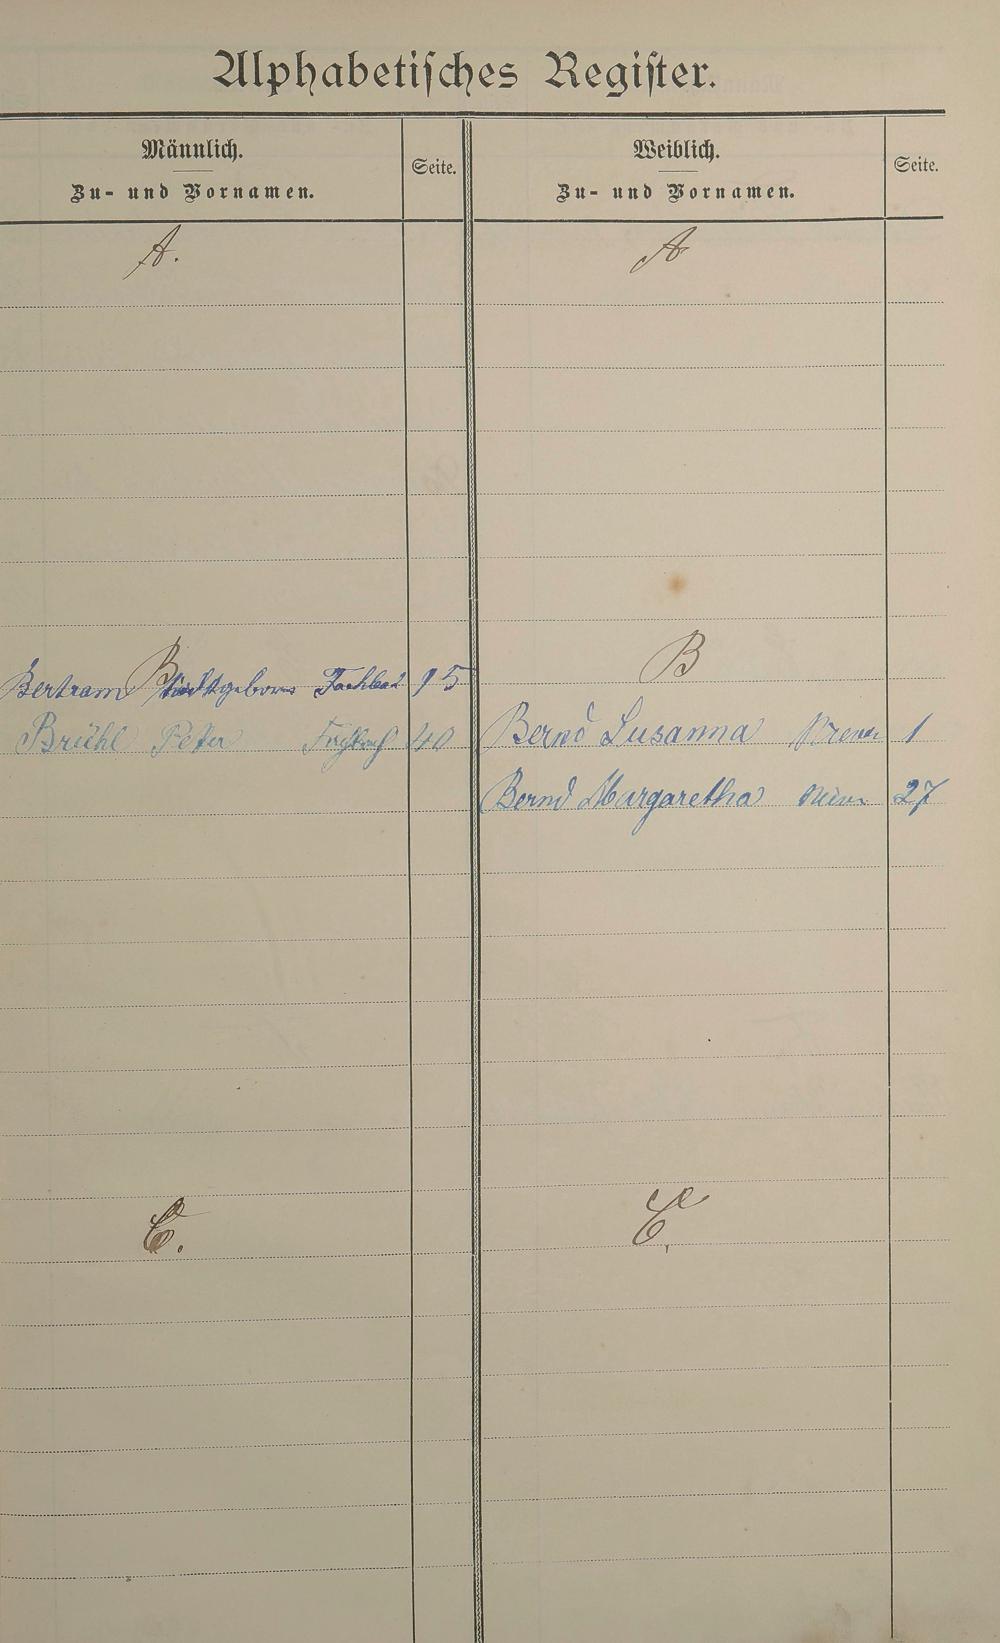 Alphabetisches Register.
Männlich.
Zu- und Vornamen.
Seite.
Weiblich.
Zu- und Vornamen.
Seite.
A.
A
B
Bertram Fachbach 15
Brühl Peter Fachbach 40
B
Bernd Susanna 1
Bernd Margaretha 27
C.
C.